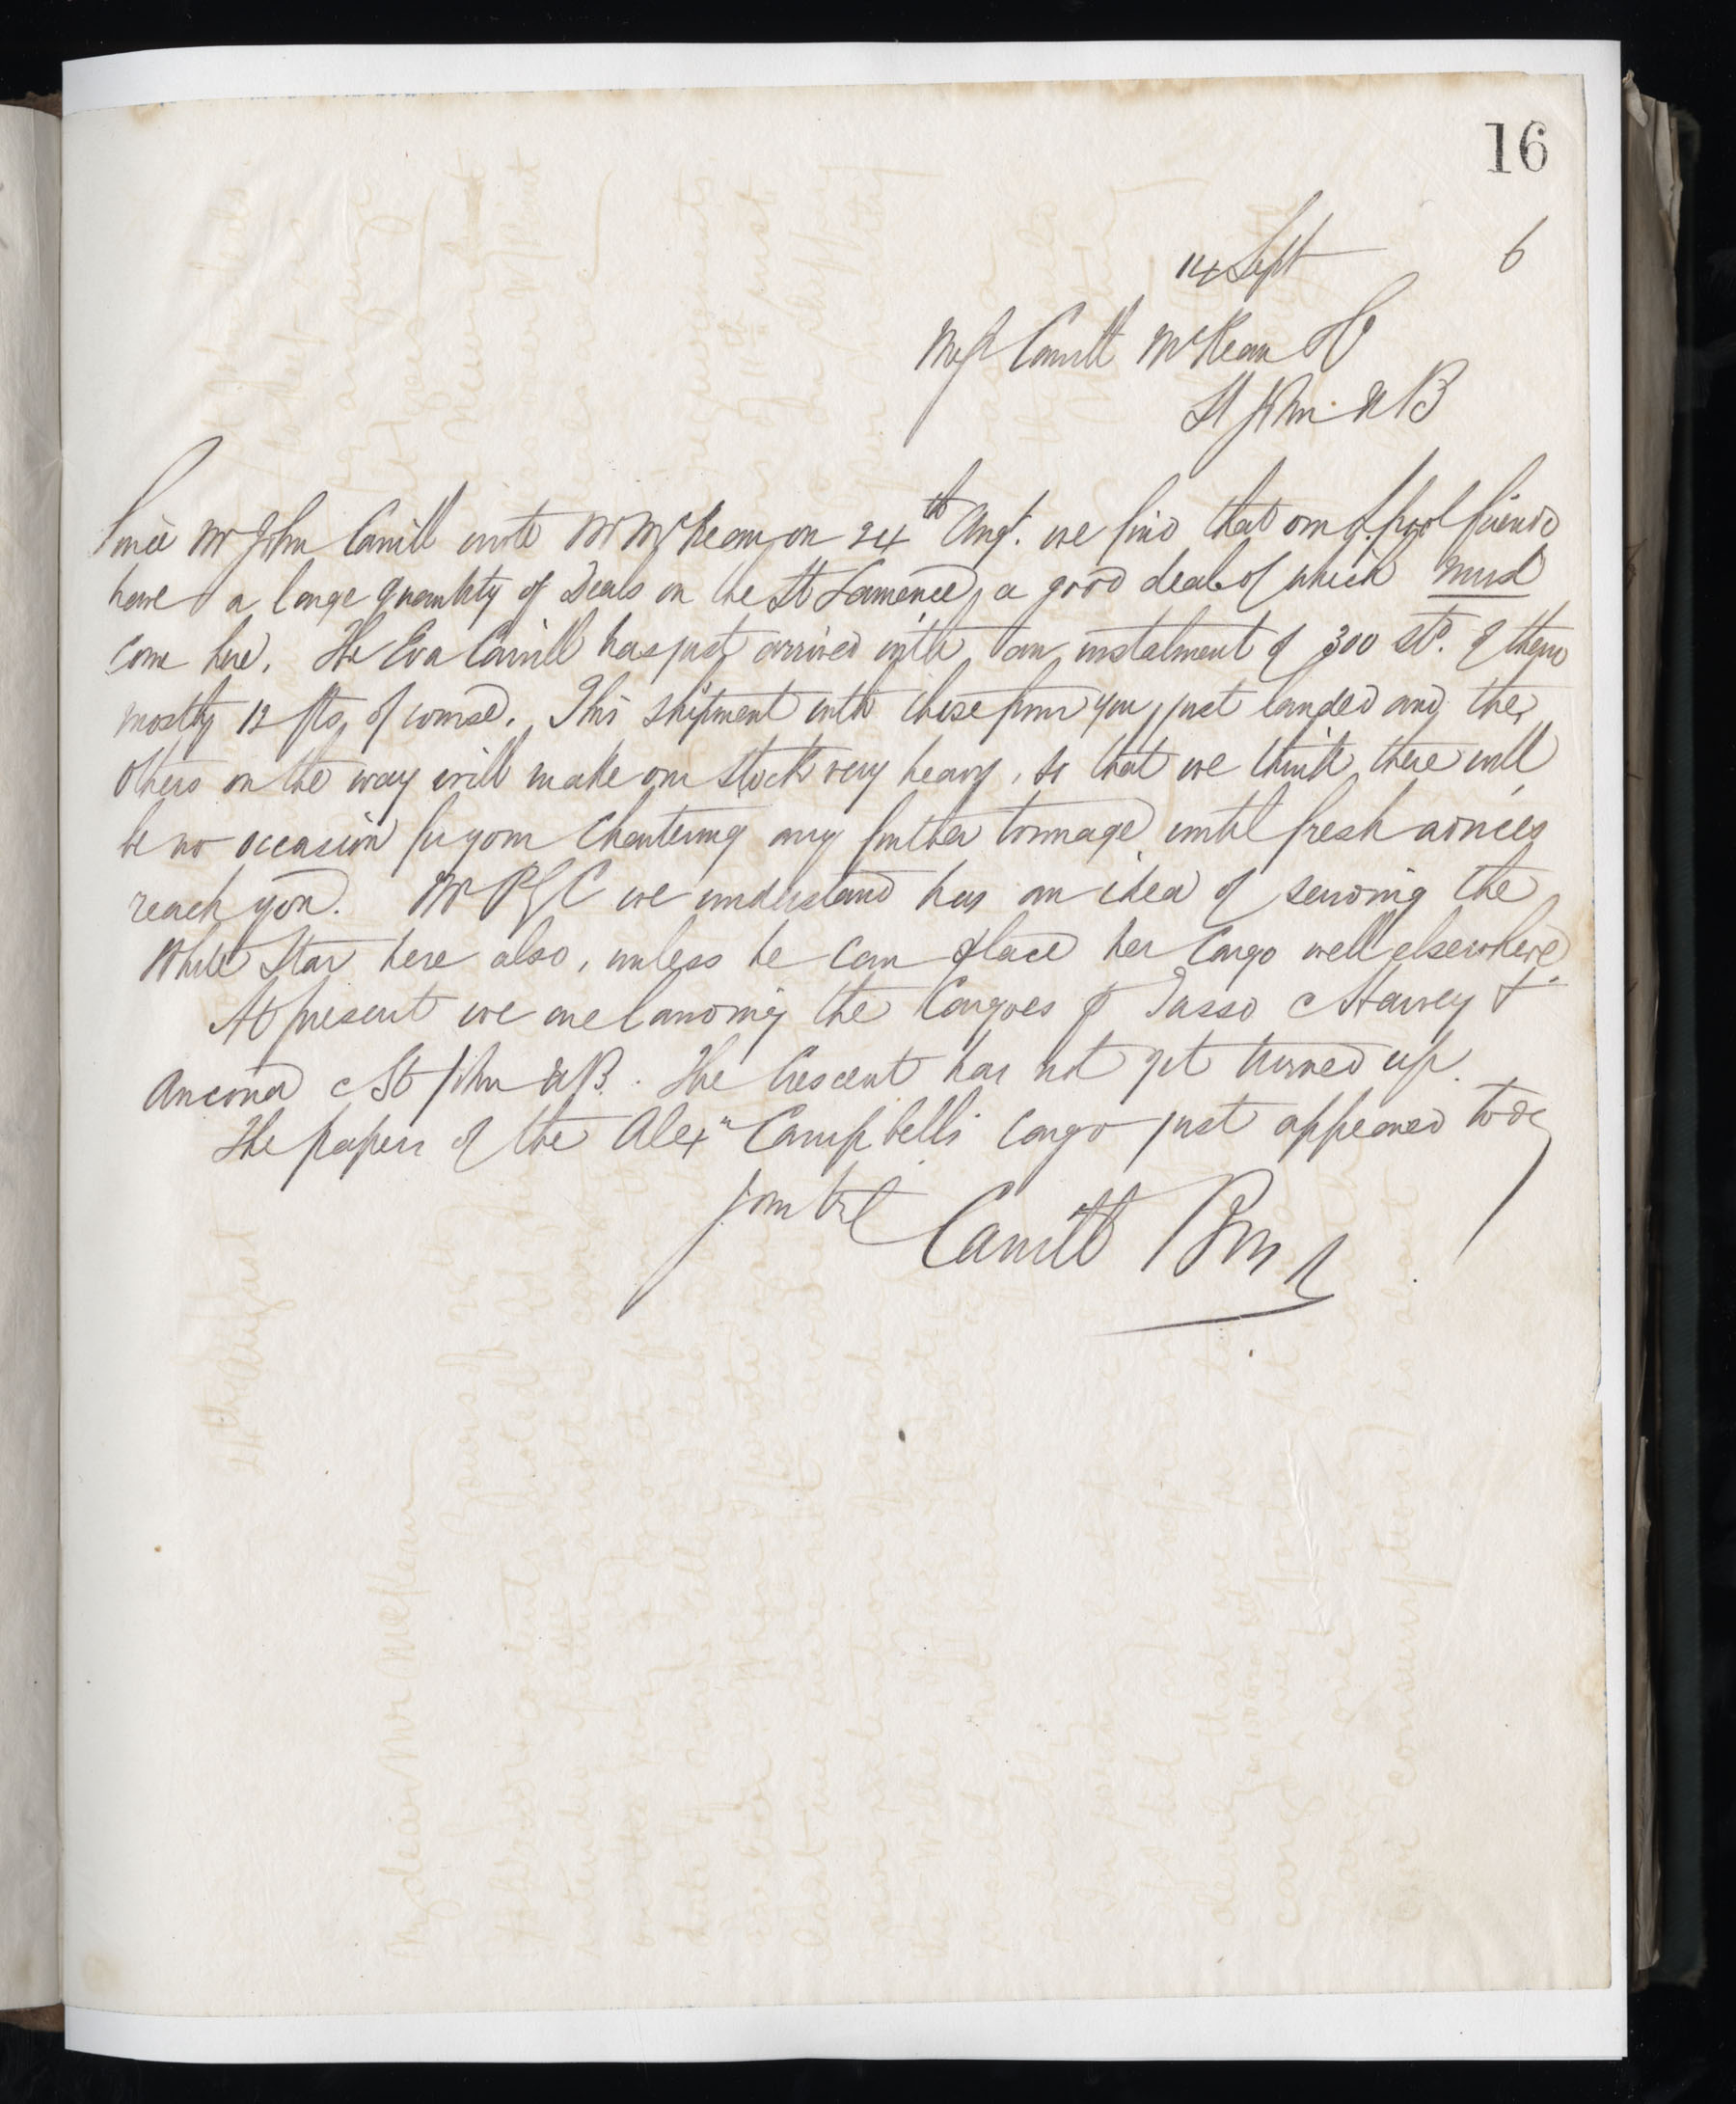 16
14 Sept 6
Messrs Carvill McKean & Co
St John N B
Since Mr John Carvill wrote Mr McKean on 24th Augt. we find that our L.pool friends
have a large quantity of Deals on the St Lawrence, a good deal of which must
come here. The Eva Carvill has just arrived with an instalment of 300 Std. of them
mostly 12 fts, of course. This shipment with those from you just landed and the
others on the way will make our stock very heavy, so that we think there will
be no occasion for your chartering any further tonnage until fresh advices
reach you. Mr P G C we understand has an idea of sending the
White Star here also, unless he can place her cargo well elsewhere.
At present we are landing the Cargoes p Tasso c Harvey &
Ancona c St John N B. The Crescent has not yet turned up.
The papers of the Alexr Campbells cargo just appeared today
Yours truly Carvill Bros